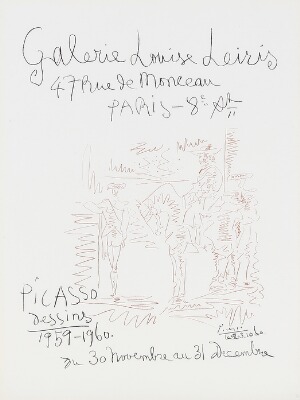 Galerie Louise Leiris
47 Rue de Monceau
PARIS - 8e Art
PICASSO
Dessins
1959-1960.
Du 30 Novembre au 31 Decembre